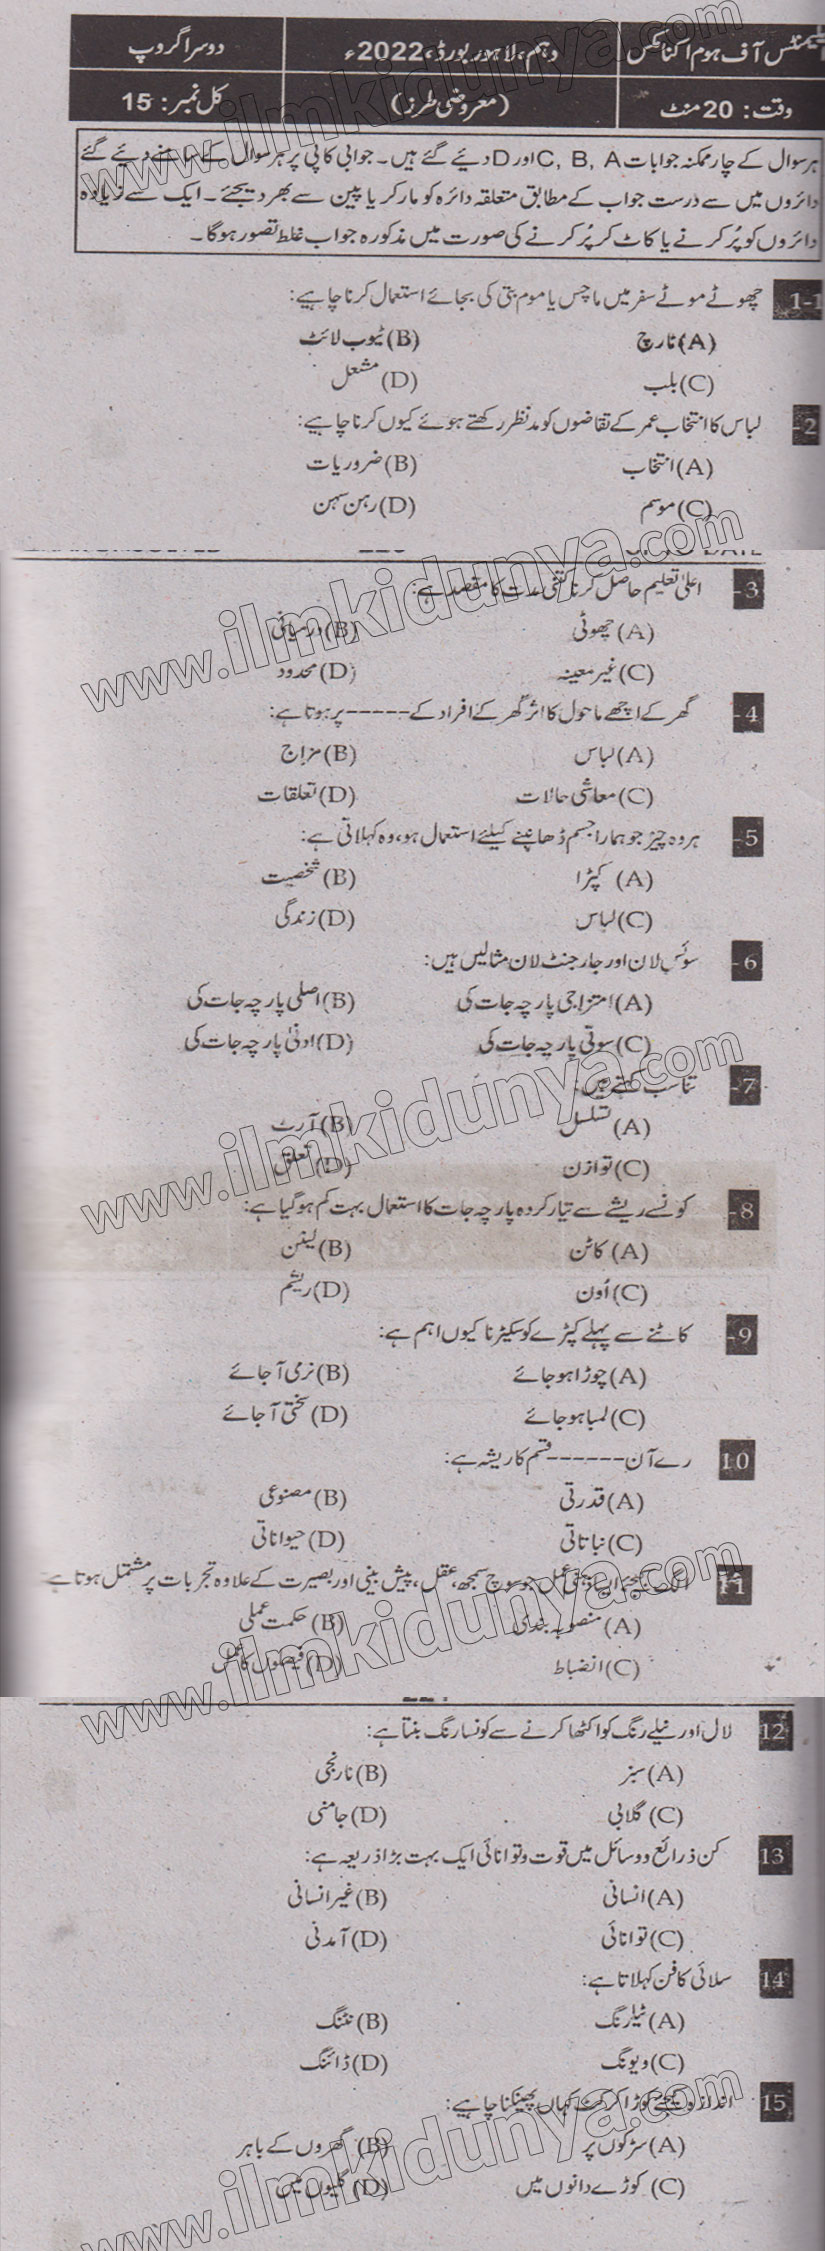 ایلیمنٹس آف ہوم اکنامکس دہم، لاہور بورڈ، 2022ء دوسرا گروپ
وقت: 20 منٹ (معروضی طرز) کل نمبر: 15
ہر سوال کے چار ممکنہ جوابات C, B, A اور D دیئے گئے ہیں۔ جوابی کاپی پر ہر سوال کے سامنے دیئے گئے
دائروں میں سے درست جواب کے مطابق متعلقہ دائرہ کو مارکر یا پین سے بھر دیجئے۔ ایک سے زیادہ
دائروں کو پُر کرنے یا کاٹ کر پُر کرنے کی صورت میں مذکورہ جواب غلط تصور ہوگا۔
1-1 چھوٹے موٹے سفر میں ماچس یا موم بتی کی بجائے استعمال کرنا چاہیے:
(A) ٹارچ (B) ٹیوب لائٹ
(C) بلب (D) مشعل
-2 لباس کا انتخاب عمر کے تقاضوں کو مدنظر رکھتے ہوئے کیوں کرنا چاہیے:
(A) انتخاب (B) ضروریات
(C) موسم (D) رہن سہن
-3 اعلیٰ تعلیم حاصل کرنا کتنی مدت کا مقصد ہے:
(A) چھوٹی (B) درمیانی
(C) غیر معینہ (D) محدود
-4 گھر کے اچھے ماحول کا اثر گھر کے افراد کے ----- پر ہوتا ہے:
(A) لباس (B) مزاج
(C) معاشی حالات (D) تعلقات
-5 ہر وہ چیز جو ہمارا جسم ڈھانپنے کیلئے استعمال ہو، وہ کہلاتی ہے:
(A) کپڑا (B) شخصیت
(C) لباس (D) زندگی
-6 سوئس لان اور جارجٹ لان مثالیں ہیں:
(A) امتزاجی پارچہ جات کی (B) اصلی پارچہ جات کی
(C) سوتی پارچہ جات کی (D) ادنیٰ پارچہ جات کی
-7 تناسب کہتے ہیں:
(A) تسلسل (B) آرٹ
(C) توازن (D) تعلق
-8 کونسے ریشے سے تیار کردہ پارچہ جات کا استعمال بہت کم ہو گیا ہے:
(A) کاٹن (B) لینن
(C) اُون (D) ریشم
-9 کاٹنے سے پہلے کپڑے کو سکیڑنا کیوں اہم ہے:
(A) چوڑا ہو جائے (B) نرمی آ جائے
(C) لمبا ہو جائے (D) سختی آ جائے
10 رے آن ------ قسم کا ریشہ ہے:
(A) قدرتی (B) مصنوعی
(C) نباتاتی (D) حیواناتی
11 ایسا ذہنی عمل جو سوچ سمجھ، عقل، پیش بینی اور بصیرت کے علاوہ تجربات پر مشتمل ہوتا ہے
(A) منصوبہ بندی (B) حکمت عملی
(C) انضباط (D) فیصلوں کا عمل
12 لال اور نیلے رنگ کو اکٹھا کرنے سے کونسا رنگ بنتا ہے:
(A) سبز (B) نارنجی
(C) گلابی (D) جامنی
13 کن ذرائع و وسائل میں قوت و توانائی ایک بہت بڑا ذریعہ ہے:
(A) انسانی (B) غیر انسانی
(C) توانائی (D) آمدنی
14 سلائی کا فن کہلاتا ہے:
(A) ٹیلرنگ (B) نٹنگ
(C) ویونگ (D) ڈائنگ
15 کوڑا کرکٹ کہاں پھینکنا چاہیے:
(A) سڑکوں پر (B) گھروں کے باہر
(C) کوڑے دانوں میں (D) گلیوں میں
www.ilmkidunya.com
www.ilmkidunya.com
www.ilmkidunya.com
www.ilmkidunya.com
www.ilmkidunya.com